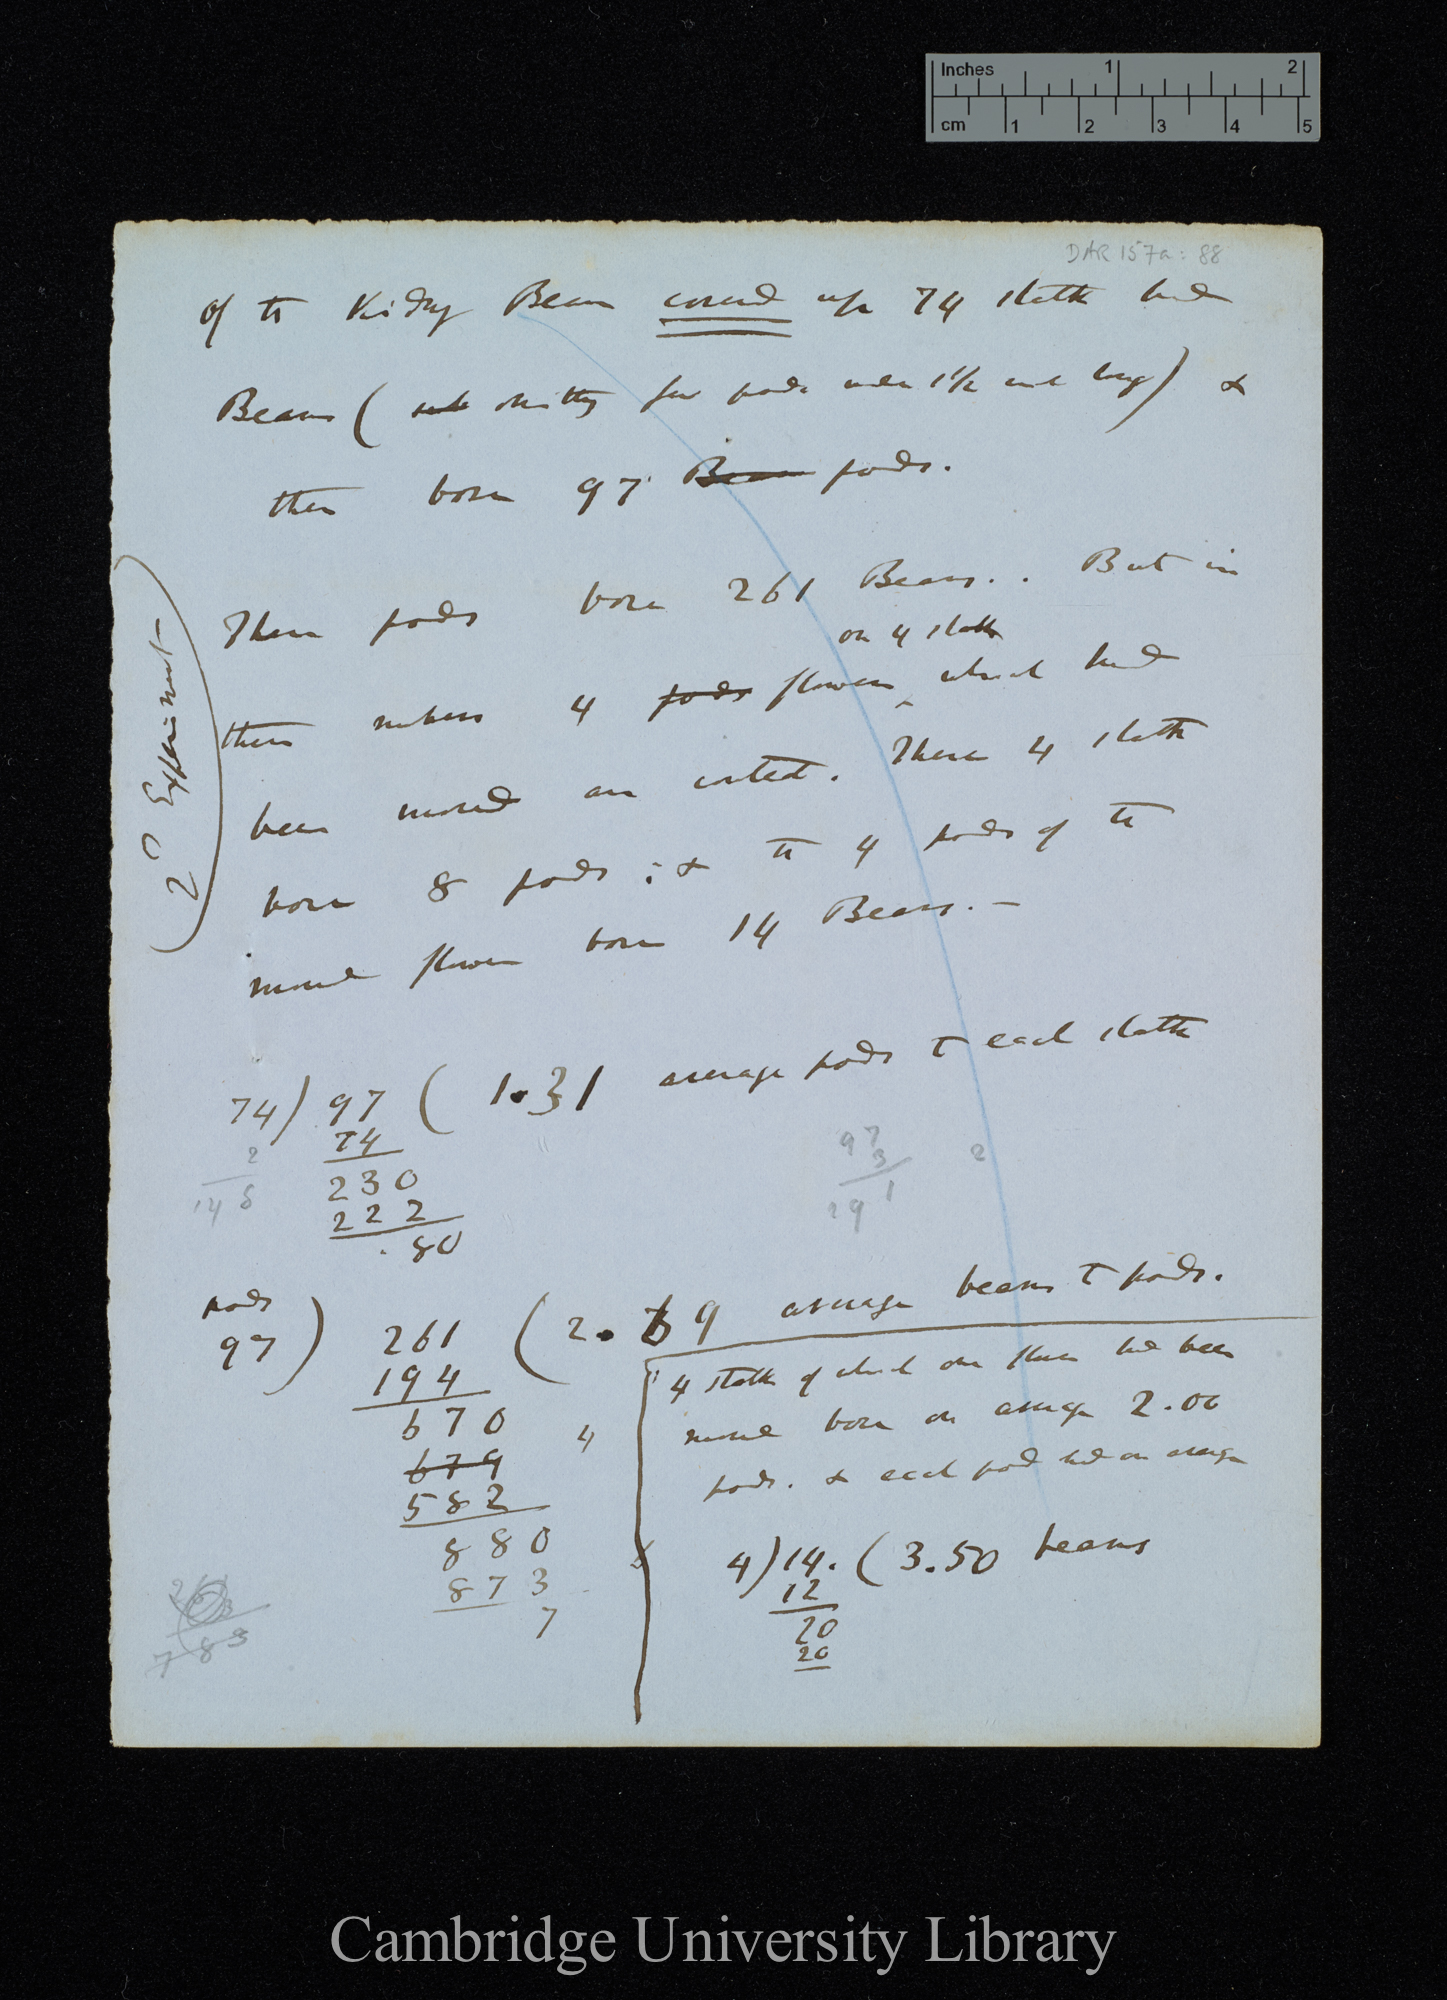 Inches 1 2
cm 1 2 3 4 5
DAR 157a: 88
of the Kidney Bean covered up 74 stalks had
Beans ( omitting few pods under 1 1/2 inch long) &
these bore 97 Bean pods.
These pods bore 261 Beans. . But in
on 4 stalks
these numbers 4 pods flowers which had
been moved are included. These 4 stalks
bore 8 pods ; & the 4 pods of the
moved flowers bore 14 Beans. —
2d Experiment —
74) 97 ( 1.31 average pods to each stalk
74
230
222
.80
2
148
97
3
291
2
pods
97) 261 (2.69 average beans to pods.
194
670
679
582
880
873
7
4
4 stalks of which one flower had been
moved bore on average 2.00
pods. & each pod had on average
4) 14. (3.50 beans
12
20
20
261
3
783
Cambridge University Library